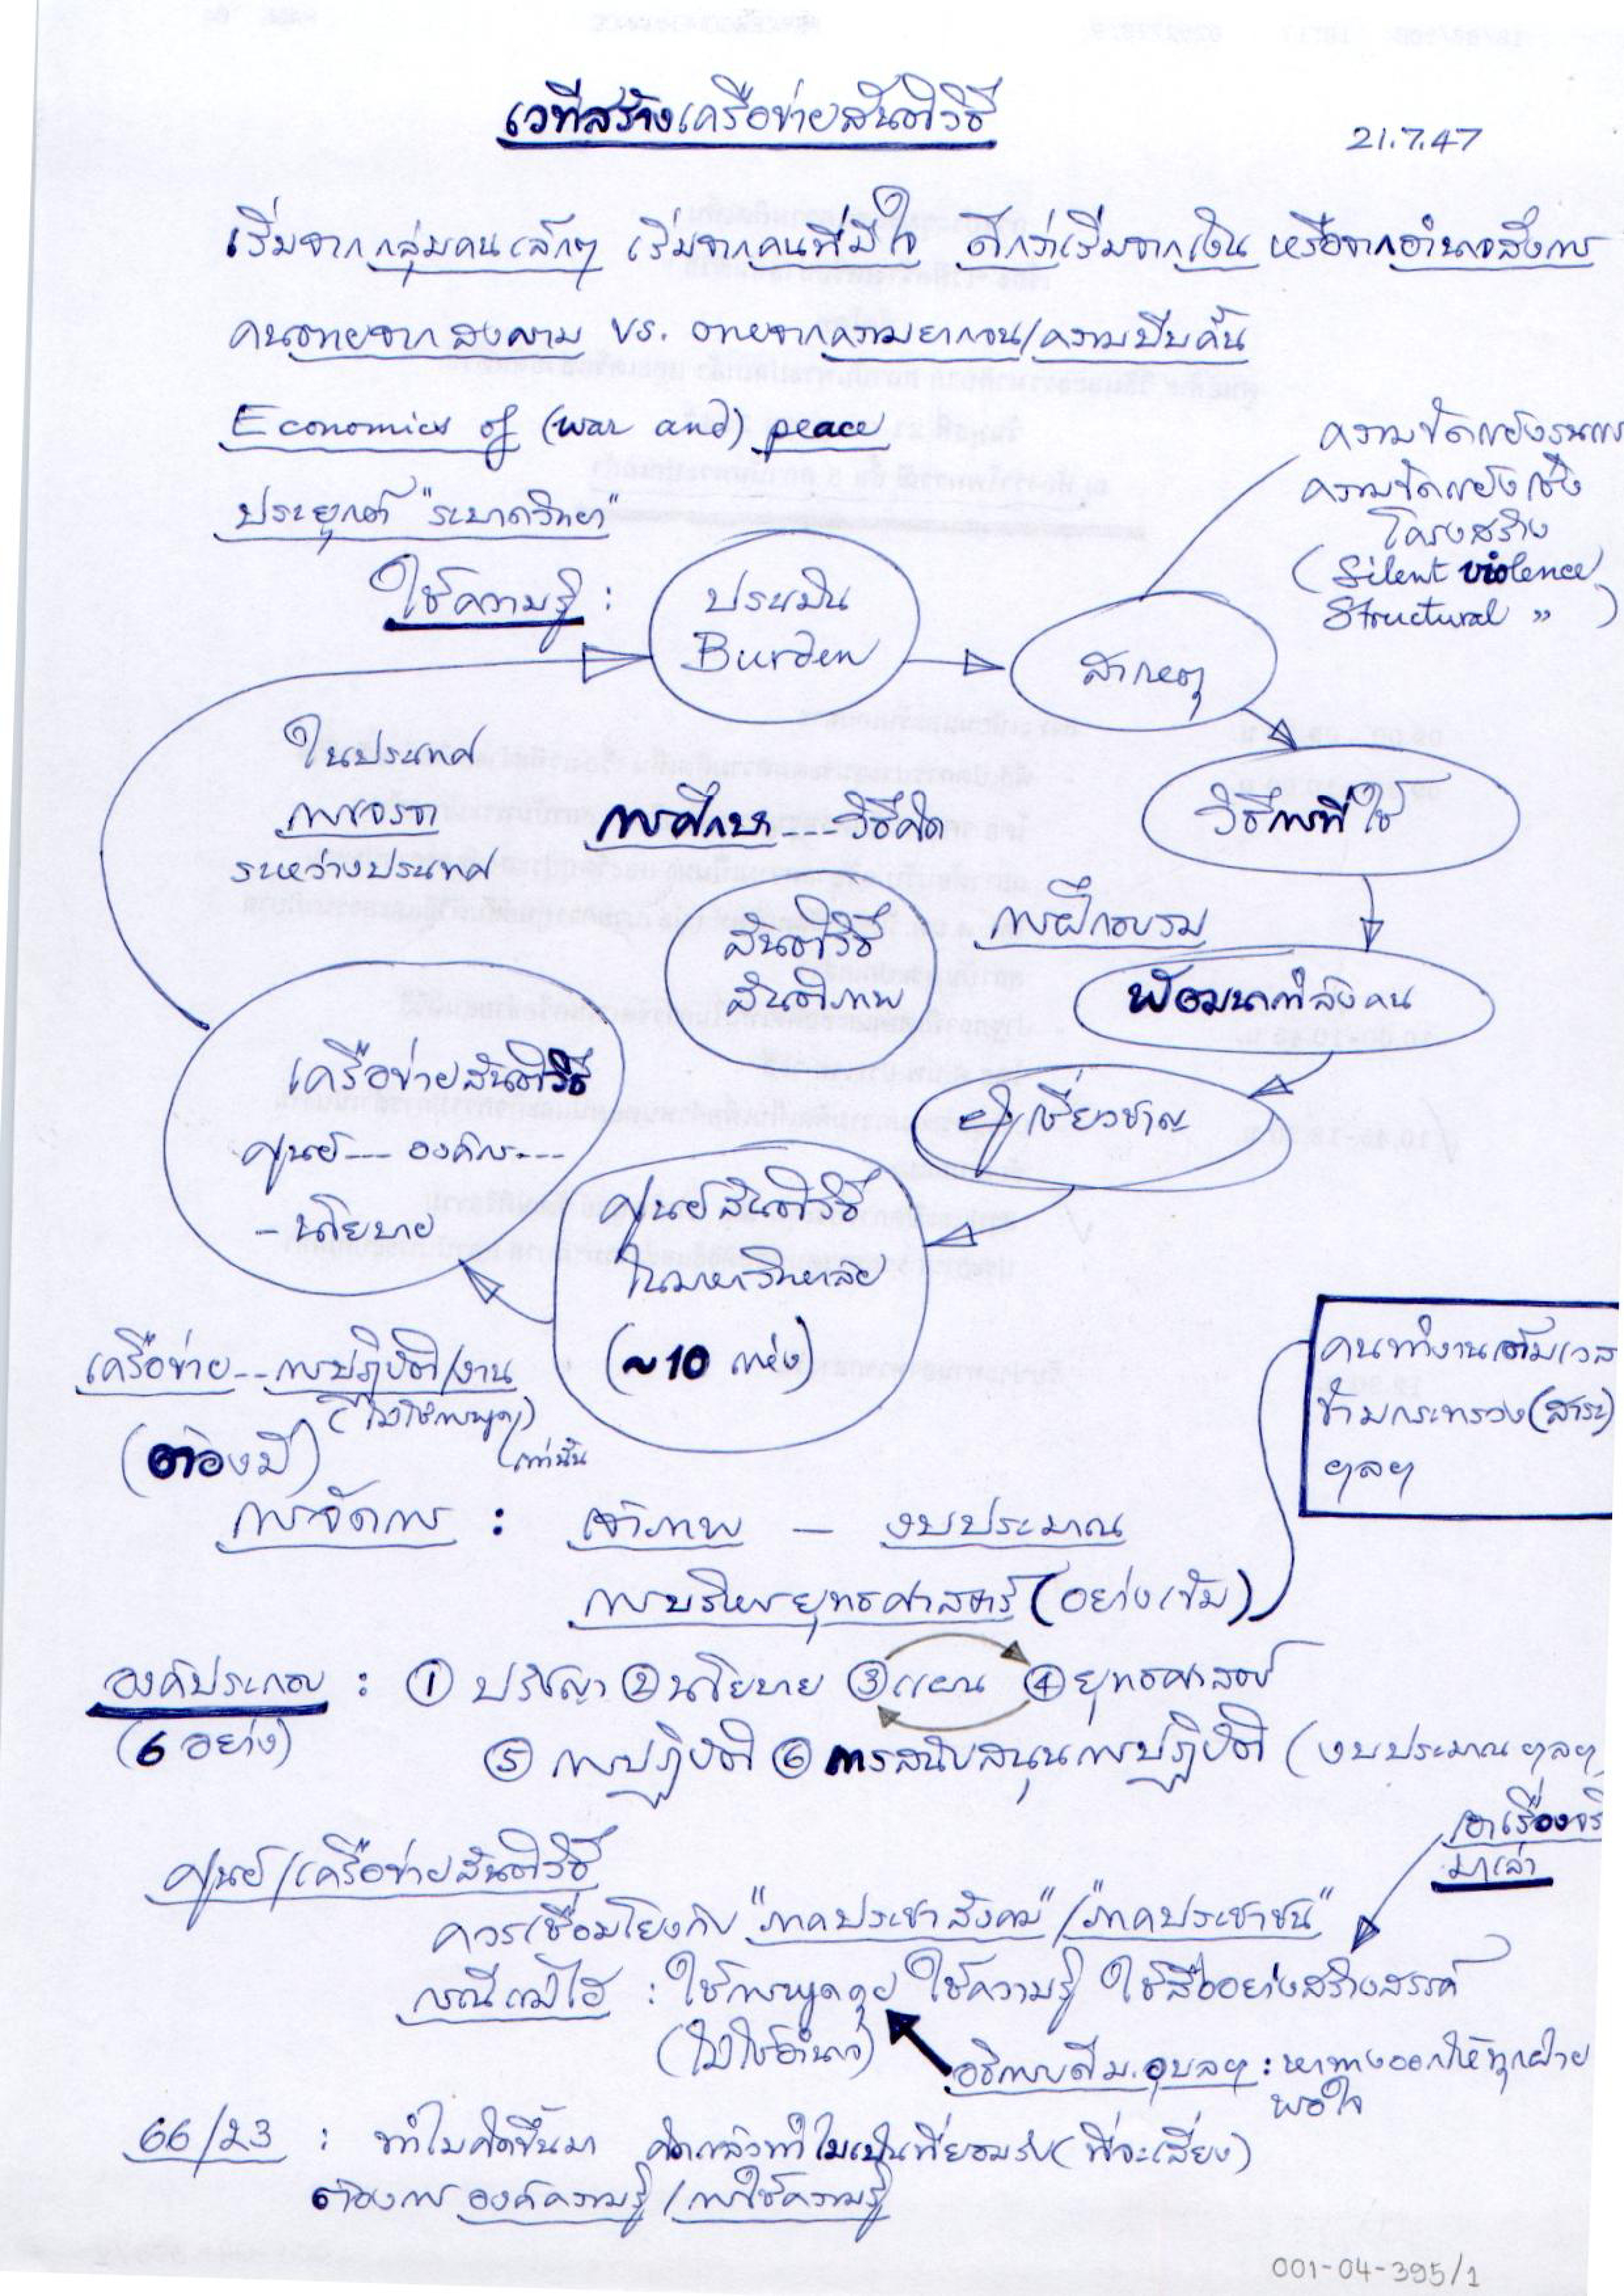 เวทีสร้างเครือข่ายสันติวิธี
21.7.47
เริ่มจากกลุ่มคนเล็กๆ เริ่มจากคนที่มีใจ ดีกว่าเริ่มจากเงิน หรือจากอำนาจสั่งการ
คนตายจากสงคราม vs. ตายจากความยากจน/ความบีบคั้น
Economics of (war and) peace
ประยุกต์ "ระบาดวิทยา"
ความขัดแย้งรุนแรง
ความขัดแย้งเชิง
โครงสร้าง
(Silent violence,
Structural ")
ใช้ความรู้ :
ประเมิน
Burden
สาเหตุ
ในประเทศ
การเจรจา
ระหว่างประเทศ
การศึกษา --- วิธีคิด
วิธีการที่ใช้
สันติวิธี
สันติภาพ
การฝึกอบรม
พัฒนากำลังคน
ผู้เชี่ยวชาญ
เครือข่ายสันติวิธี
ศูนย์ --- องค์กร ---
- นโยบาย
ศูนย์สันติวิธี
ในมหาวิทยาลัย
(~10 แห่ง)
เครือข่าย -- การปฏิบัติ/งาน
(ไม่ใช่การพูด)
เท่านั้น
(ต้องมี)
คนทำงานเต็มเวลา
ข้ามกระทรวง (สาระ)
ฯลฯ
การจัดการ : เจ้าภาพ - งบประมาณ
การบริหารยุทธศาสตร์ (อย่างเข้ม)
องค์ประกอบ : ① ปรัชญา ② นโยบาย ③ แผน ④ ยุทธศาสตร์
(6 อย่าง)
⑤ การปฏิบัติ ⑥ การสนับสนุนการปฏิบัติ (งบประมาณ ฯลฯ
เอาเรื่องจริ
มาเล่า
ศูนย์/เครือข่ายสันติวิธี
ควรเชื่อมโยงกับ "ภาคประชาสังคม"/"ภาคประชาชน"
กรณีแม่ไฮ : ใช้การพูดคุย ใช้ความรู้ ใช้สื่ออย่างสร้างสรรค์
(ไม่ใช้อำนาจ)
อธิการบดี ม.อุบลฯ : หาทางออกให้ทุกฝ่าย
พอใจ
66/23 : ทำไมคิดขึ้นมา คิดแล้วทำไมเป็นที่ยอมรับ (ที่จะเสี่ยง)
ต้องการ องค์ความรู้ / การใช้ความรู้
001-04-395/1